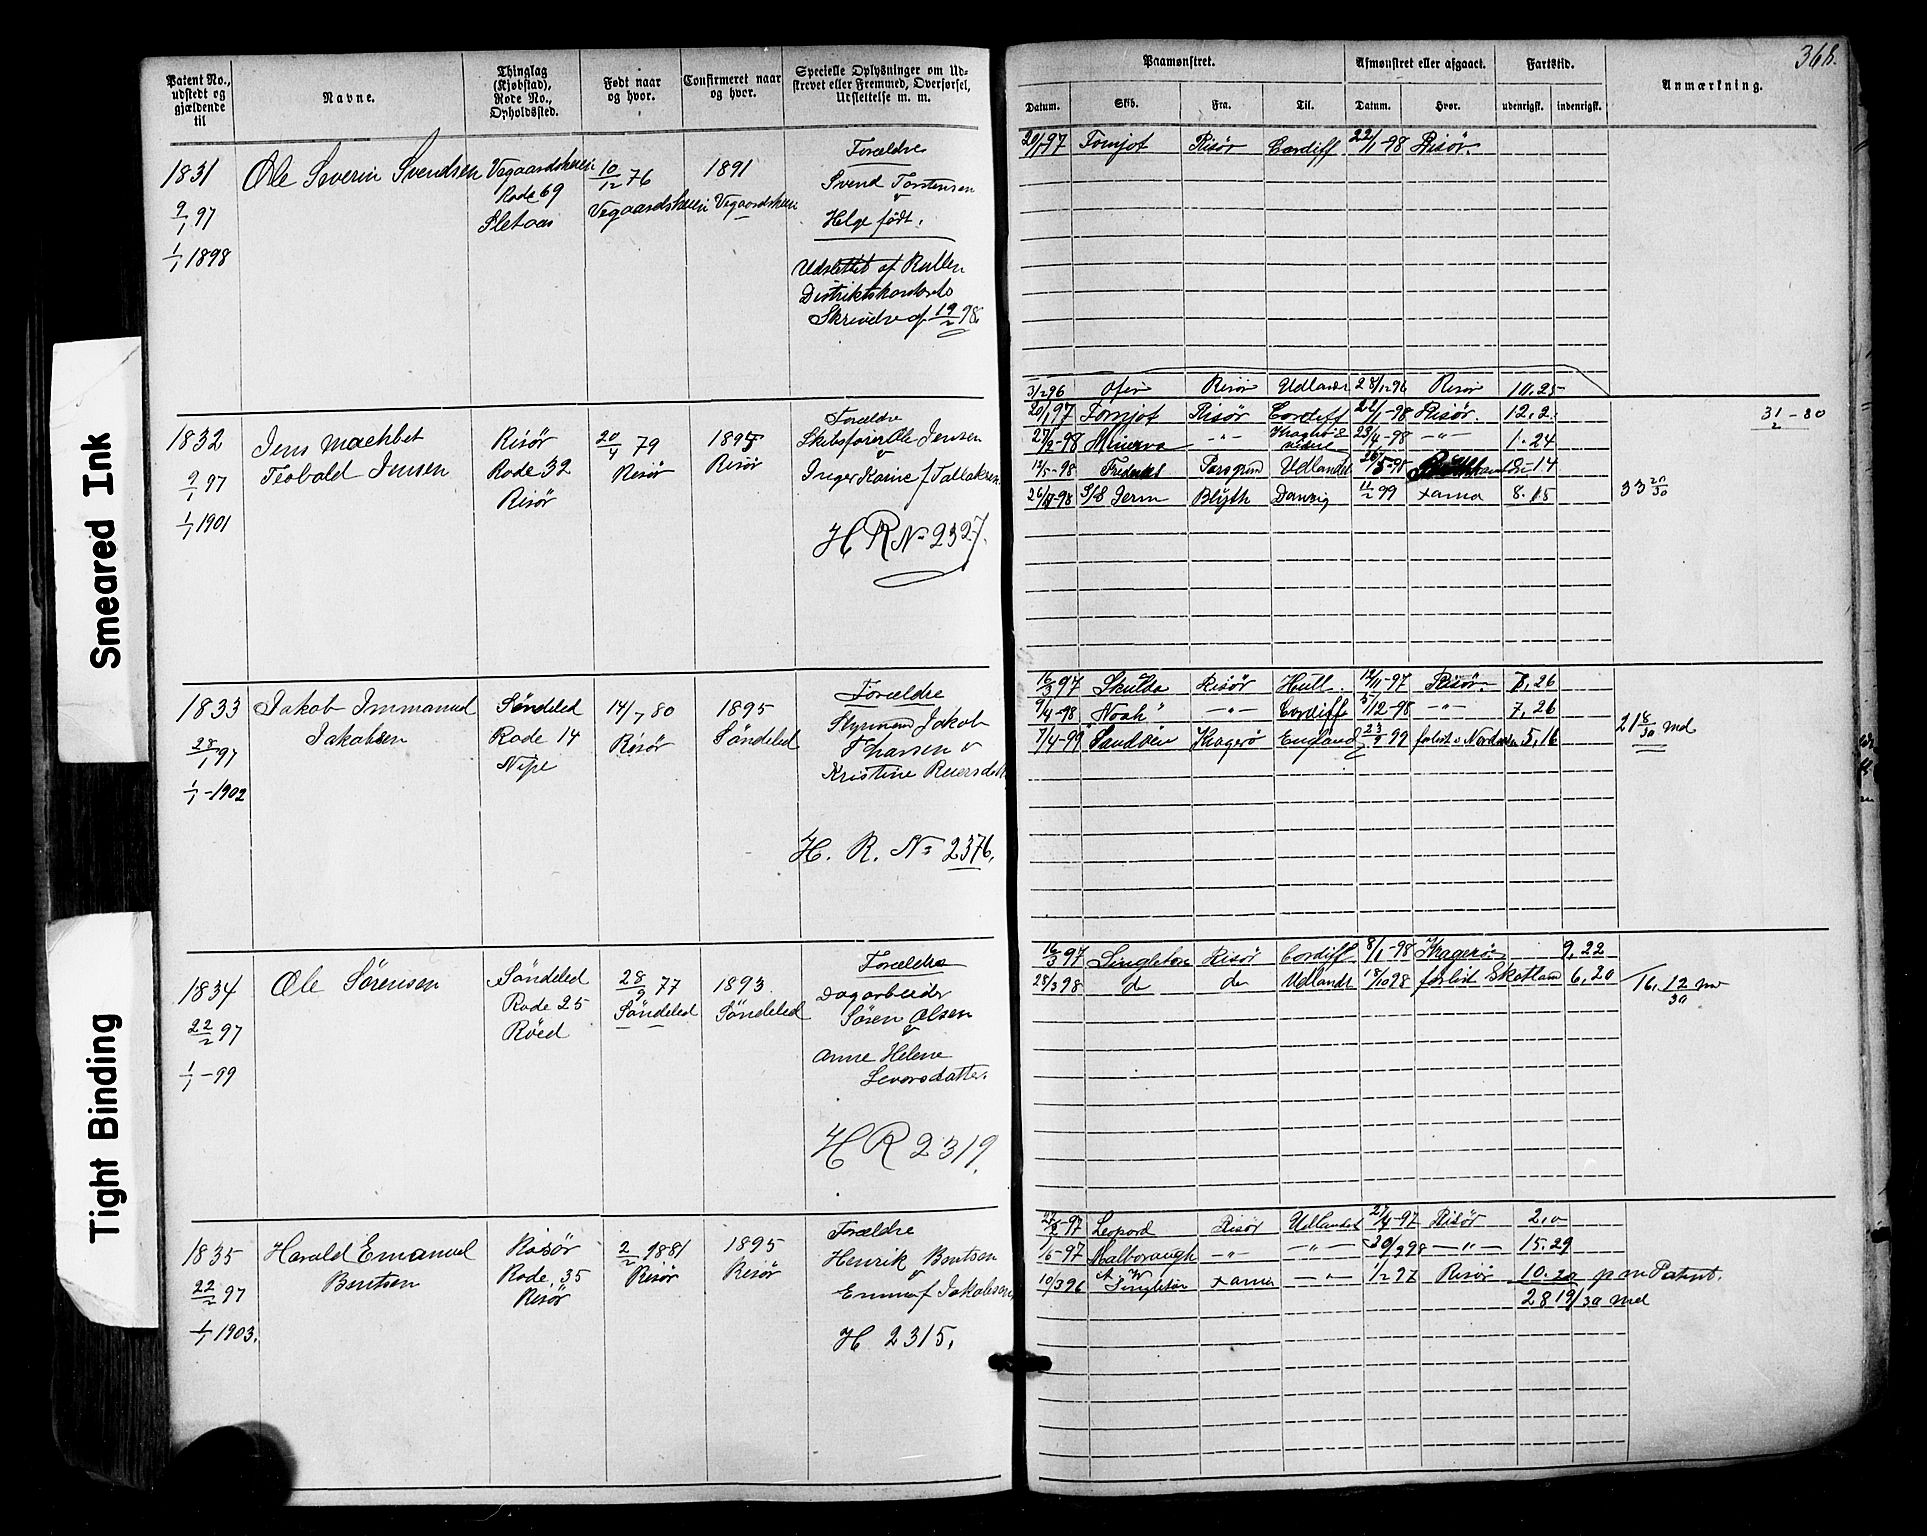 Smeared Ink
Tight Binding
Patent No., udstedt og gjældende til
Navne.
Thinglag (Kjøbstad), Rode No., Opholdssted.
Født naar og hvor.
Confirmeret naar og hvor.
Specielle Oplysninger om Udskrevet eller Fremmed, Overførsel, Udslettelse m. m.
Paamønstret.
Afmønstret eller afgaaet.
Fartstid.
Anmærkning.
368.
Datum.
Skib.
Fra.
Til.
Datum.
Hvor.
udenrigsk.
indenrigsk.
1831
9/1 97
1/1 1898
Ole Severin Svendsen
Vegaardsheien
Rode 69
Sletaas
10/12 76
Vegaardsheien
1891
Vegaardsheien
Forældre
Svend Torstensen
v
Helge født.
Udslettet af Rullen
Distriktskontorets
Skrivelse af 19/2 98.
20/1 97 Fornjot Risör Cardiff 22/1-98 Risör.
1832
9/1 97
1/1 1901
Jens Machbet
Teobald Jensen
Risör
Rode 32
Risör
20/4 79
Risör
1895
Risör
Forældre
Skibsfører Ole Jensen
v
Inger Karine f Tallaksen
H R No 2327.
31/2 96 Ofir Risör Udlandet 28/12 96 Risör 10.25
20/1 97 Fornjot Risör Cardiff 22/1-98 Risör. 12.2.
27/2-98 Minerva -"- Kragerö & 23/4-98 -"- 1.24
12/5-98 Porsgrund Udlandet
26/8-98 S/S Jerm Blyth Danzig 11/2 99 xania 8.15
31/2-80
33 20/30
1833
28/1 97
1/1-1902
Jakob Immanuel
Jakobsen
Söndeled
Rode 14
Nipe
14/7 80
Risör
1895
Söndeled
Forældre
Styrmand Jakob
Tharsen v
Kristine Reiersdatt
H. R. No 2376.
16/3 97 Skulda Risör Hull. 12/11-97 Risör. 7,26
9/4-98 "Noah" -"- Cardiff 5/12-98 -"- 7,26
7/4-99 "Sandöen" Kragerö England 23/9 99 forlist i Nordsöen 5,16
21 8/30 md
1834
22/2 97
1/1-99
Ole Sörensen
Söndeled
Rode 25
Röed
28/9 77
Söndeled
1893.
Söndeled
Forældre
Dagarbeider
Sören Olsen
v
Anne Helene
Levorsdatter.
H R 2319.
16/3 97 Singleton Risör Cardiff 8/1-98 Kragerö 9,22
28/3 98 do do Udlandet 18/10 98 forlist Skotland 6,20
16. 12/30 md
1835
22/2 97
1/1 1903.
Harald Emanuel
Bentsen
Risör
Rode 35
Risör
2/2 1881
Risör
1895
Risör
Forældre
Henrik Bentsen
v
Emma f Jakobsen
H 2315.
27/2-97 Leopard Risör Udlandet 27/4-97 Risör 2,0
1/6-97 Malborough -"- -"- 30/9 98 -"- 15.29
10/3 96 A W Singleton xania -"- 1/2 97 Risör 10.20 p m Patent.
28 19/30 md